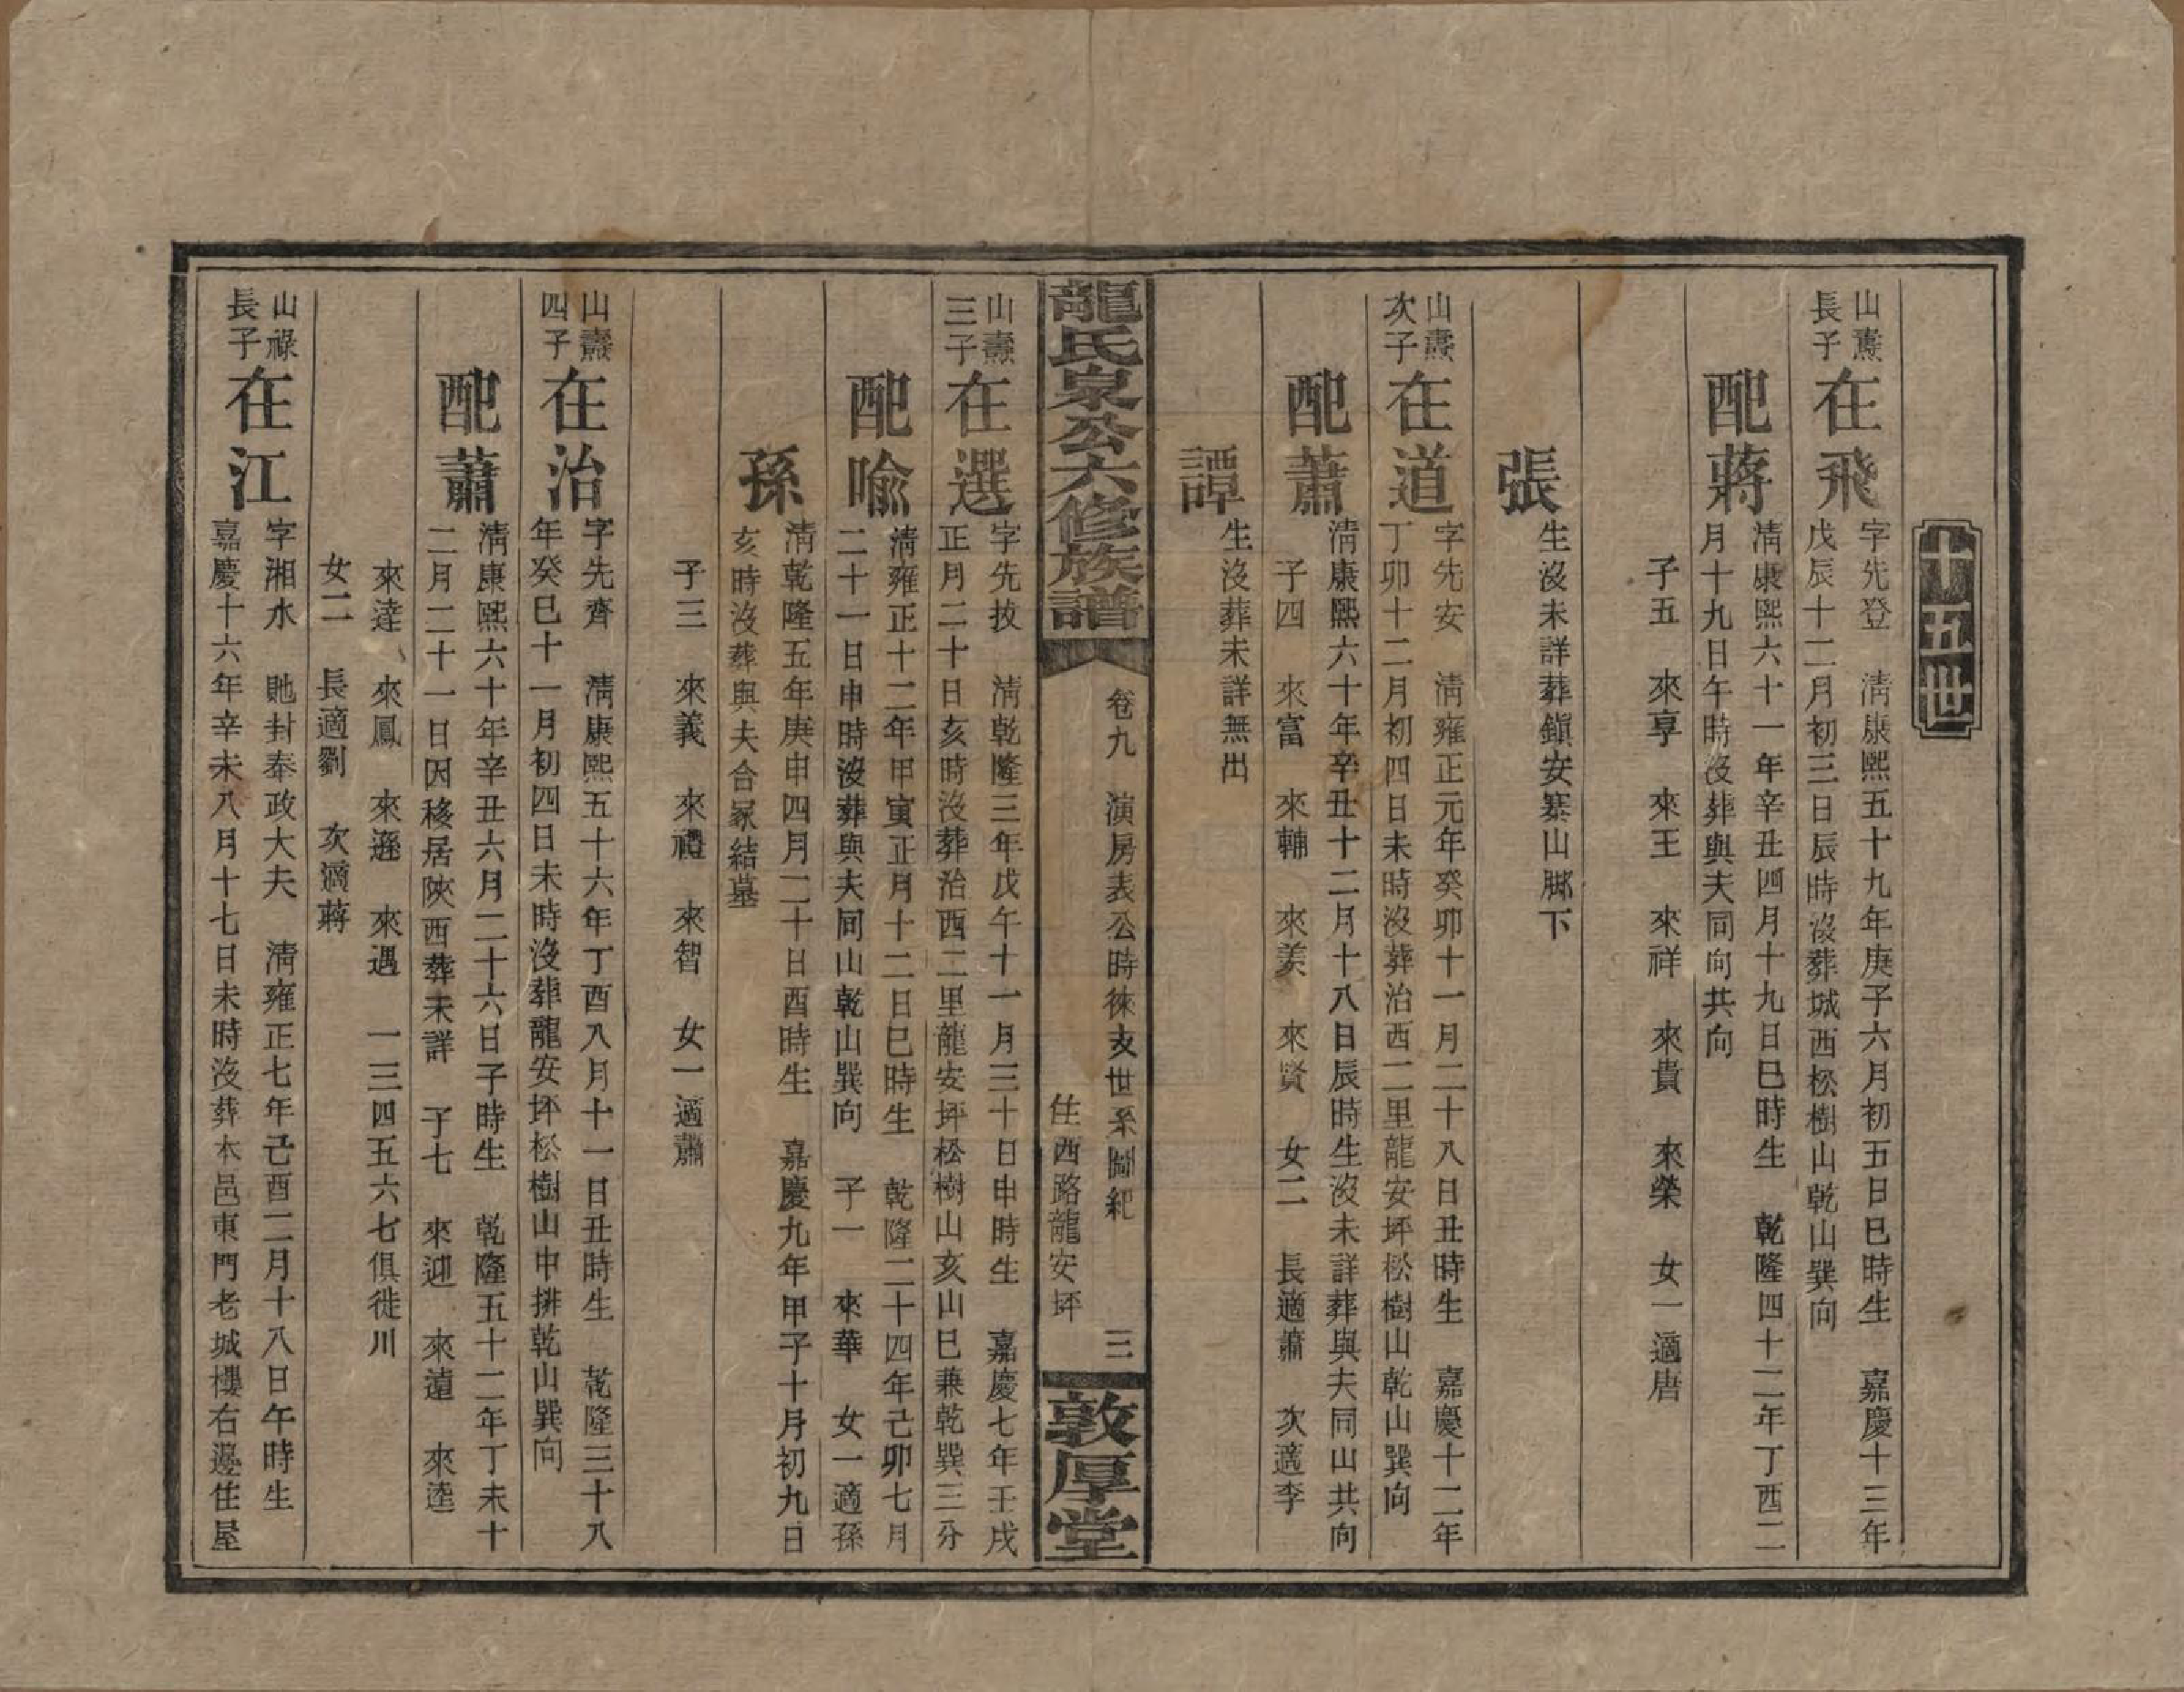 十五世
山燾長子
在飛
字先登　清康熙五十九年庚子六月初五日巳時生　嘉慶十三年
戊辰十二月初三日辰時沒葬城西松樹山乾山巽向
配蔣
清康熙六十一年辛丑四月十九日巳時生　乾隆四十二年丁酉二
月十九日午時沒葬與夫同向共向
子五　來享　來王　來祥　來貴　來榮　女一適唐
張
生沒未詳葬鎮安寨山腳下
山燾次子
在道
字先安　清雍正元年癸卯十一月二十八日丑時生　嘉慶十二年
丁卯十二月初四日未時沒葬治西二里龍安坪松樹山乾山巽向
配蕭
清康熙六十年辛丑十二月十八日辰時生沒未詳葬與夫同山共向
子四　來富　來輔　來美　來賢　女二　長適蕭　次適李
譚
生沒葬未詳無出
龍氏泉公六修族譜
卷九　演房表公時徠支世系圖紀　三
住西路龍安坪
敦厚堂
山燾三子
在選
字先技　清乾隆三年戊午十一月三十日申時生　嘉慶七年壬戌
正月二十日亥時沒葬治西二里龍安坪松樹山亥山巳兼乾巽三分
配喩
清雍正十二年甲寅正月十二日巳時生　乾隆二十四年己卯七月
二十一日申時沒葬與夫同山乾山巽向　子一　來華　女一適孫
孫
清乾隆五年庚申四月二十日酉時生　嘉慶九年甲子十月初九日
亥時沒葬與夫合冢結墓
子三　來義　來禮　來智　女一適蕭
山燾四子
在治
字先齊　清康熙五十六年丁酉八月十一日丑時生　乾隆三十八
年癸巳十一月初四日未時沒葬龍安坪松樹山申拼乾山巽向
配蕭
清康熙六十年辛丑六月二十六日子時生　乾隆五十二年丁未十
二月二十一日因移居陝西葬未詳　子七　來迎　來遠　來逵
來達　來鳳　來遜　來遇　一三四五六七俱徙川
女二　長適劉　次適蔣
山祿長子
在江
字湘水　貤封奉政大夫　清雍正七年己酉二月十八日午時生
嘉慶十六年辛未八月十七日未時沒葬本邑東門老城樓右邊住屋